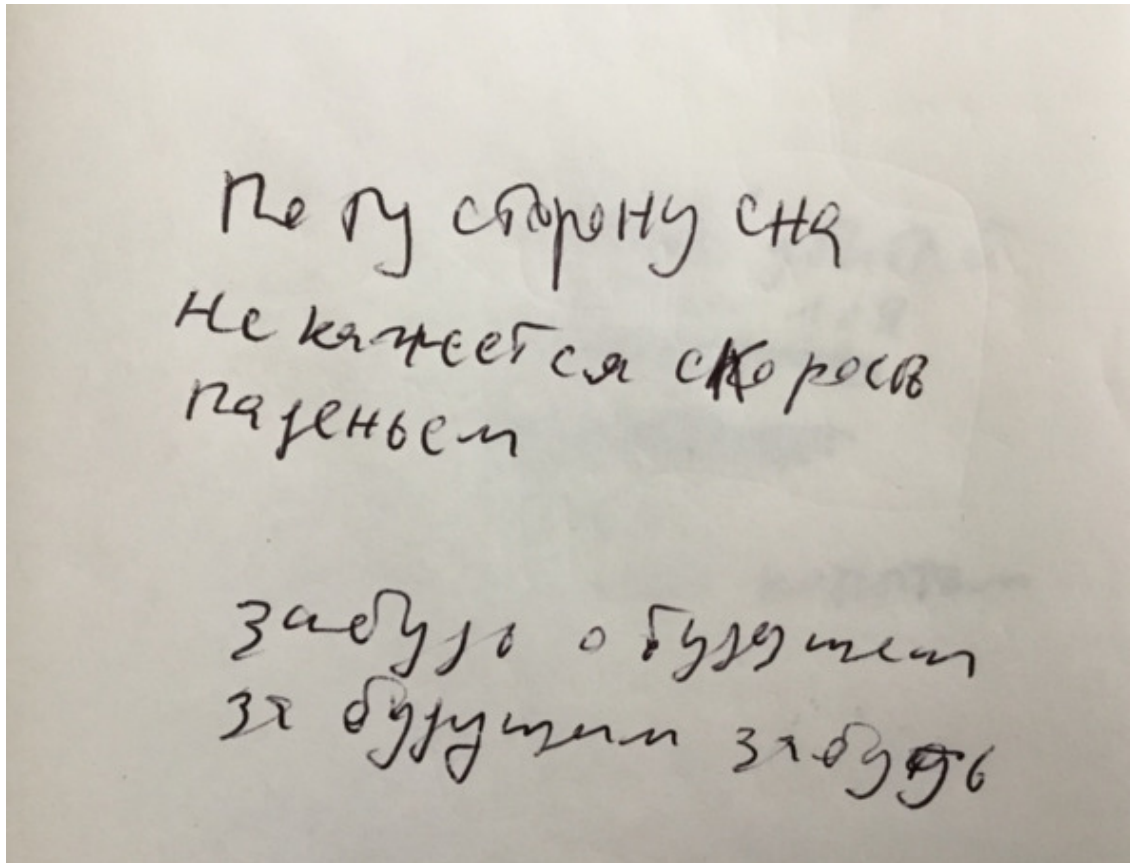 По ту сторону сна
Не кажется скорость
паденьем
забудь о будущем
за будущим забудь